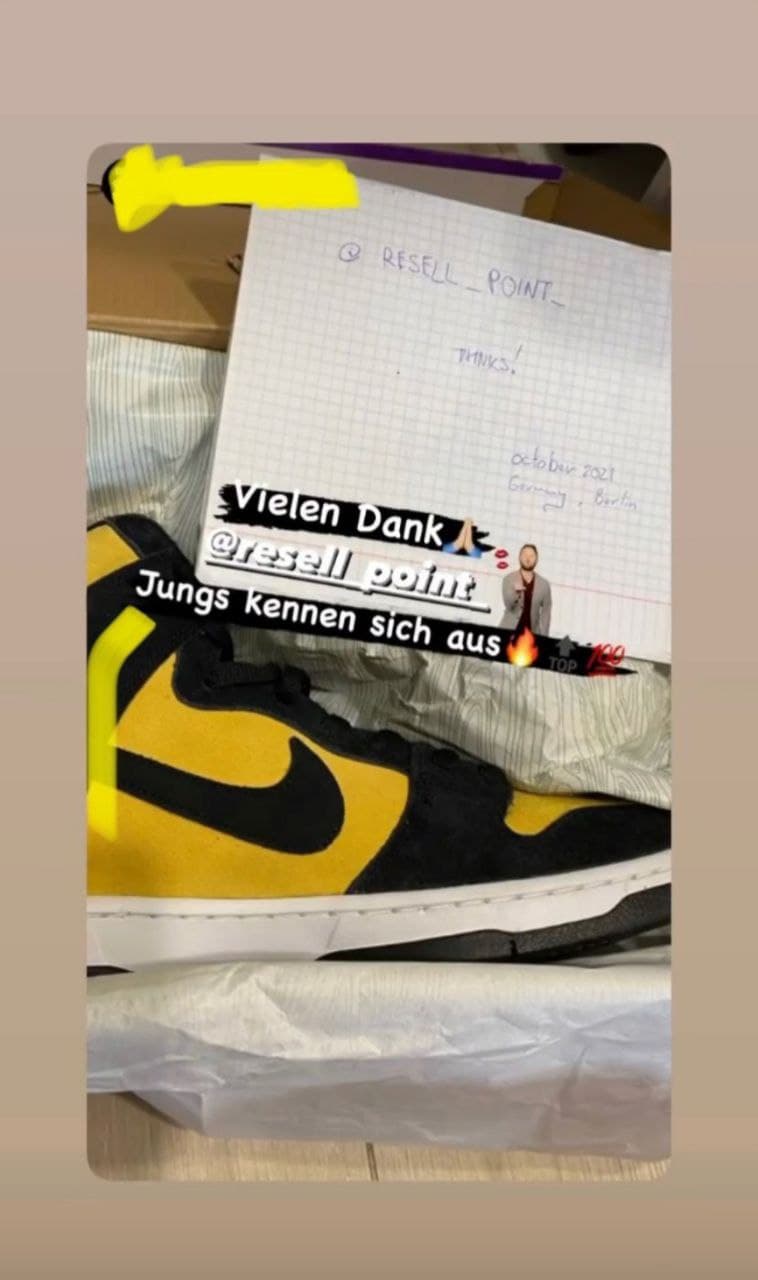 @ RESELL_POINT_
THNKS!
october 2021
Germany, Berlin
Vielen Dank🙏🏼
@resell_point_
Jungs kennen sich aus🔥
TOP 💯